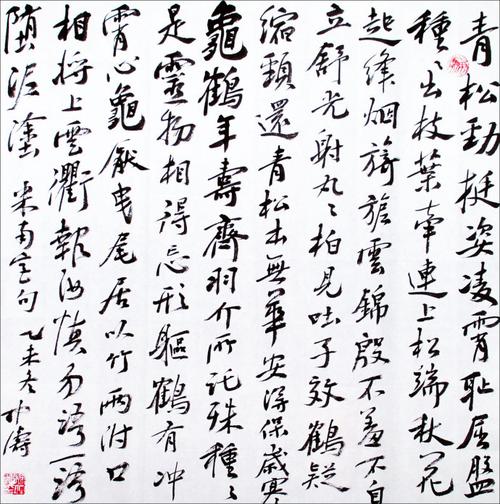 青松勁挺姿凌霄恥屈盤
種〻出枝葉牽連上松端秋花
起絳烟旖旎雲錦殷不羞不自
立舒光射丸〻柏見吐子效鶴疑
縮頸還青松本無華安得保歲寒
龜鶴年壽齊羽介所託殊種〻
是靈物相得忘形軀鶴有冲
霄心龜厭曳尾居以竹兩附口
相將上雲衢報汝慎勿語一語
堕泥塗 米南宫句 乙未冬 濤